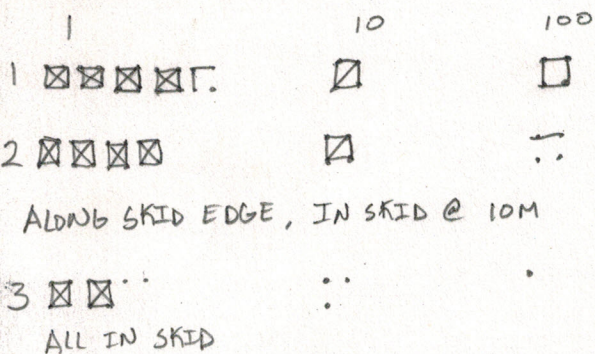 1 10 100
1
2
ALONG SKID EDGE, IN SKID @ 10M
3
ALL IN SKID